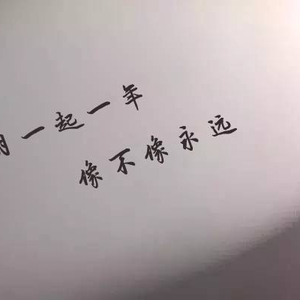 一起一年
像不像永远